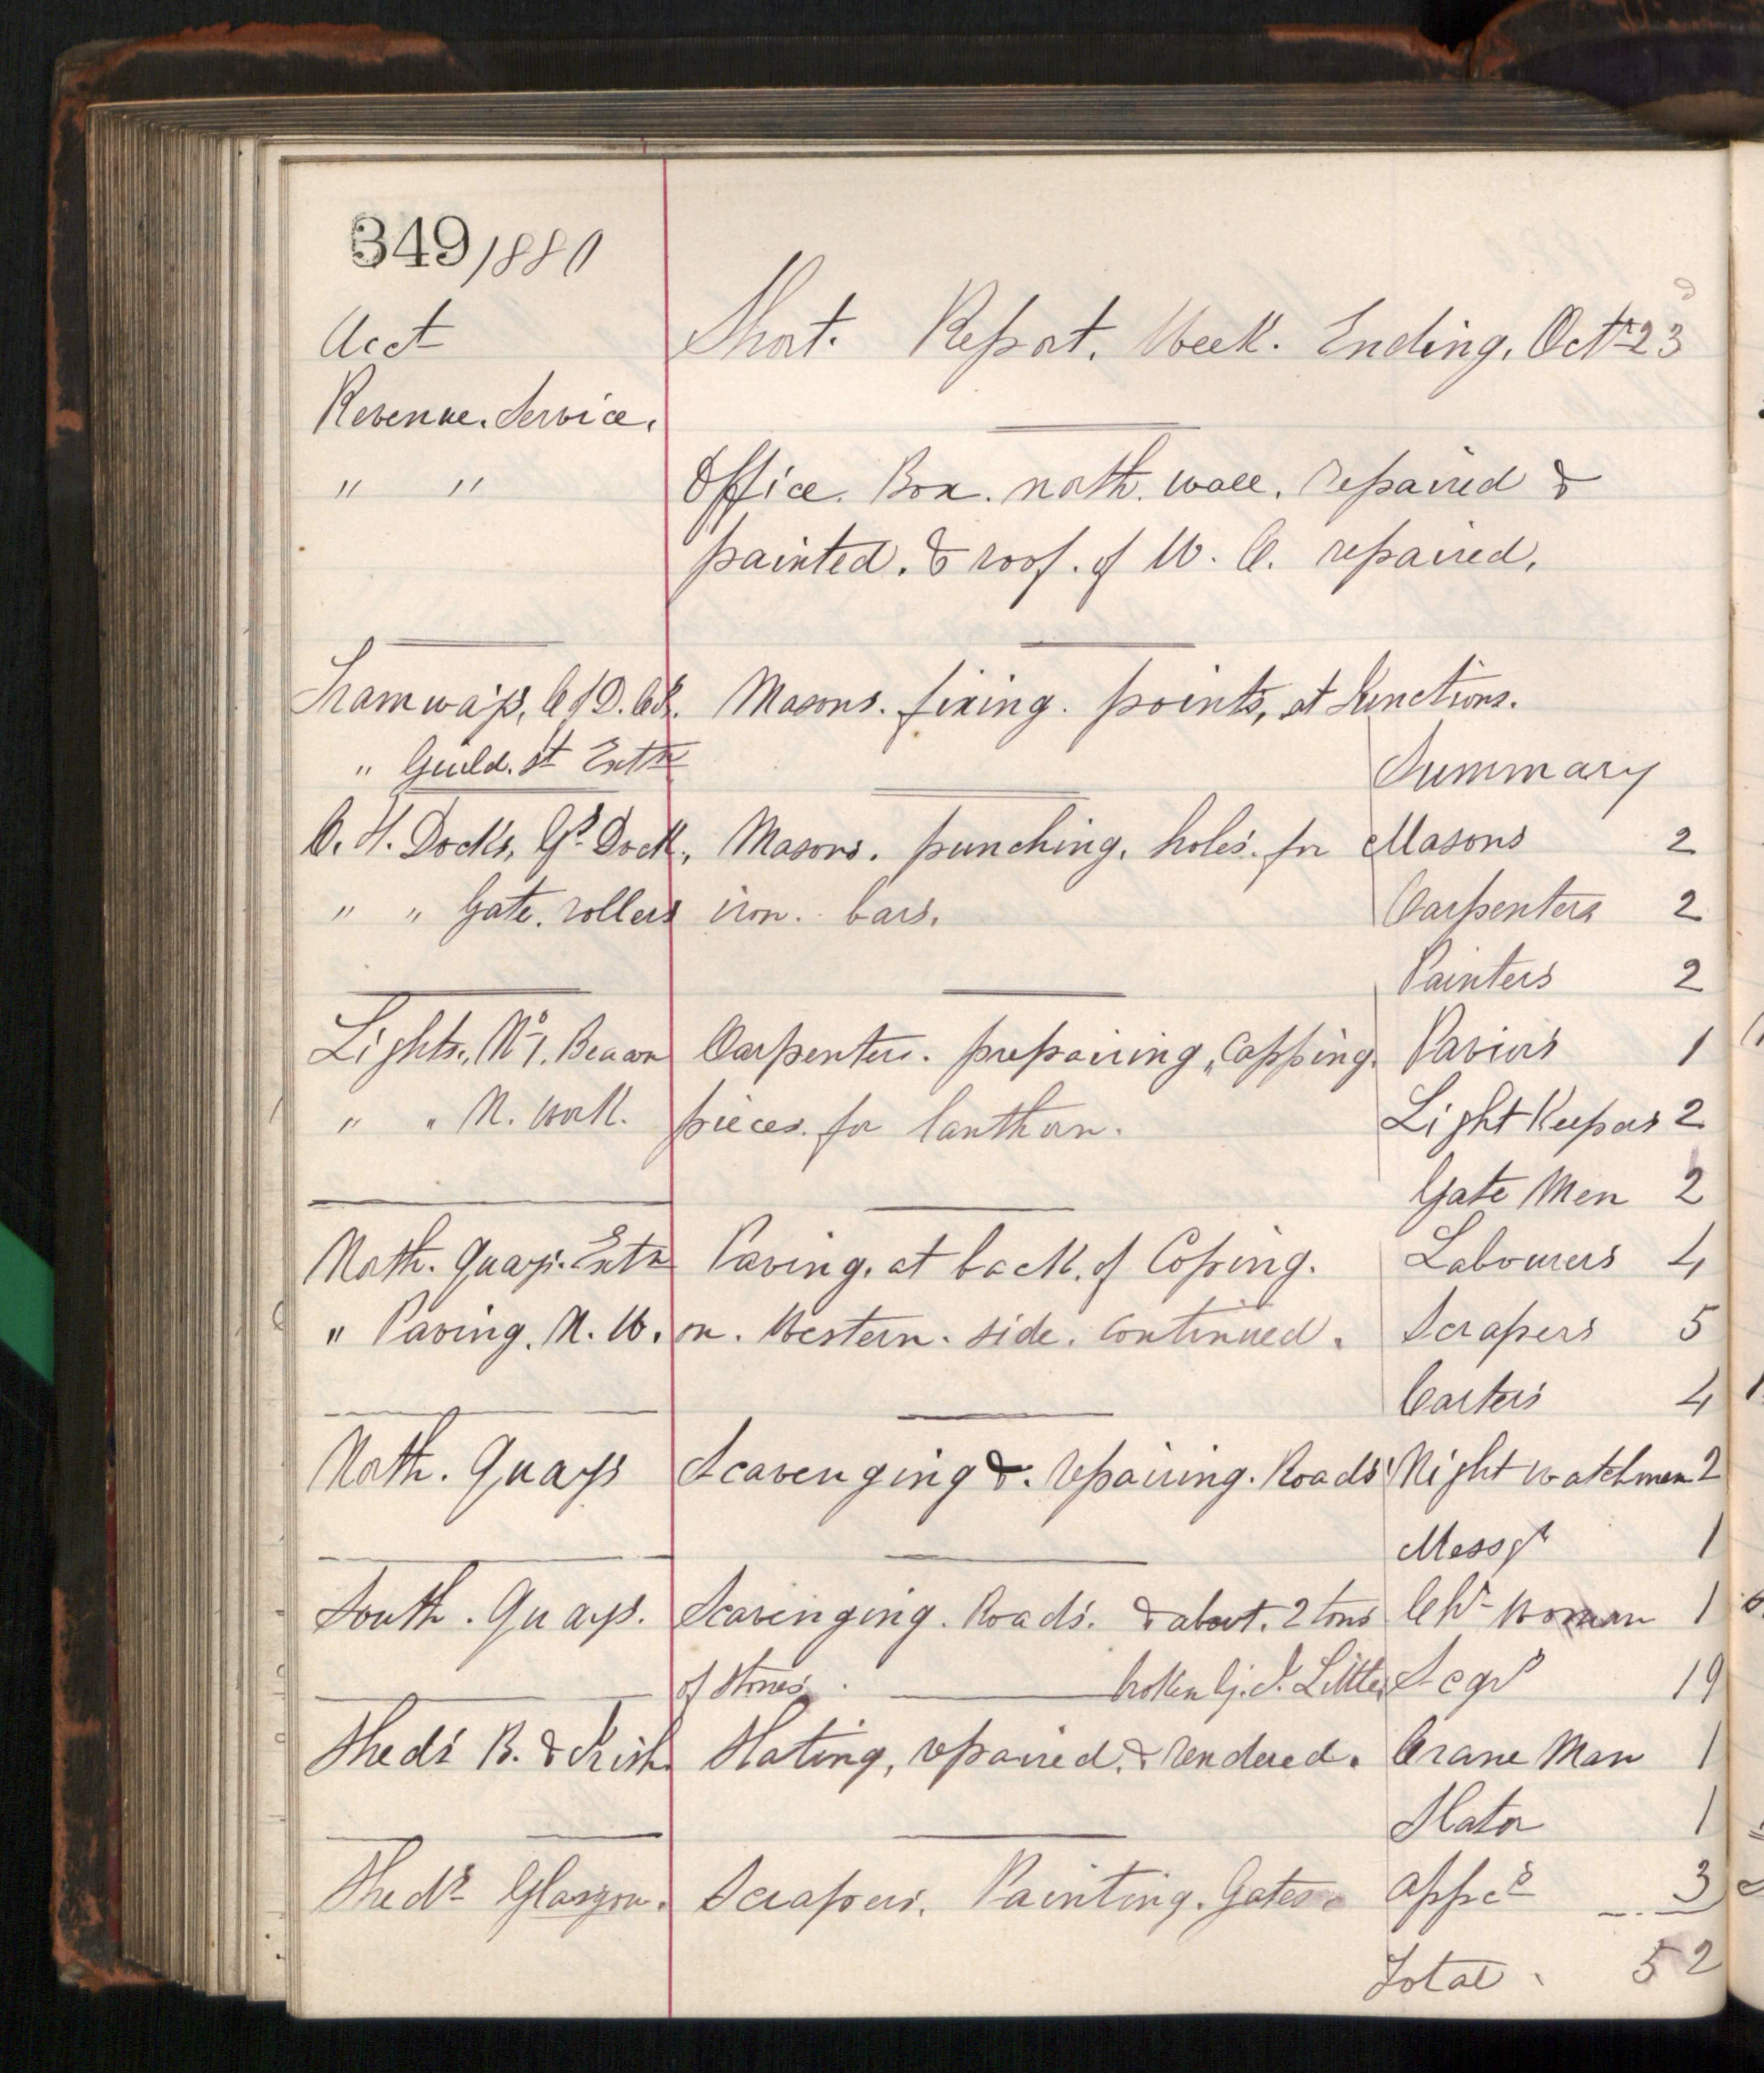 349 1880
Acct
Short. Report. Week. Ending. Octr 23d
Revenue. Service.
" " Office. Box. north. wall. repaired &
painted. & roof. of W. C. repaired.
Tramways, C of D. Masons. fixing. points, at Junctions.
" Guild. St Extn
Summary
C. H. Docks, Gd Dock, Masons. punching. holes. for Masons 2
" " Gate. rollers iron. bars. Carpenters 2
Painters 2
Lights., No 1. Beacon Carpenters. preparing, Capping. Paviors 1
" " N. Wall. pieces. for lanthorn. Light Keepers 2
Gate Men 2
North. Quays. Extn Paving. at back. of Coping. Labourers 4
" Paving. N. W. on. Western. side. Continued. Scrapers 5
Carters 4
North. Quays Scavenging &. repairing. Roads Night watchmen 2
Messgr 1
South. Quays. Scavenging. Roads. & about. 2 tons Chr Woman 1
of Stones. broken G. I. Little Scgrs 19
Sheds B. & Irish Slating, repaired. & rendered. Crane Man 1
Slator 1
Sheds Glasgow. Scrapers. Painting. Gates. appcs 3
Total 52